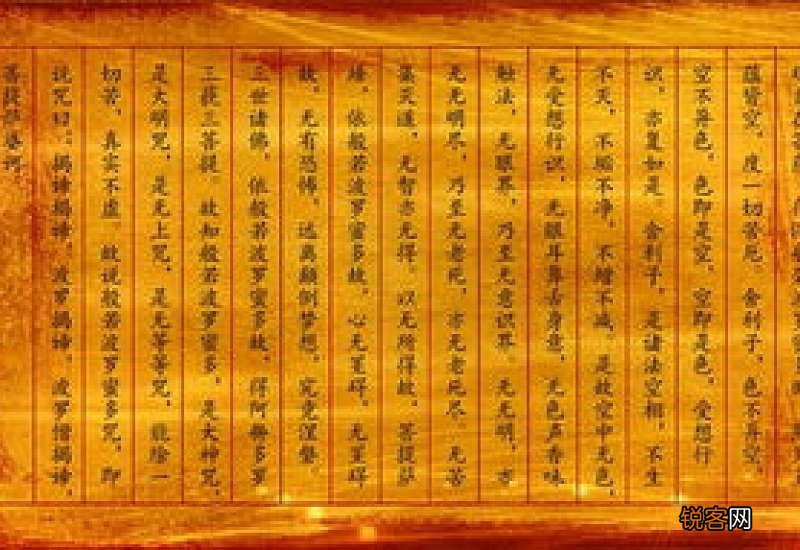 蕴皆空，度一切苦厄。舍利子，色不异空，
空不异色，色即是空，空即是色。受想行
识，亦复如是。舍利子，是诸法空相，不生
不灭，不垢不净，不增不减。是故空中无色，
无受想行识，无眼耳鼻舌身意，无色声香味
触法，无眼界，乃至无意识界。无无明，亦
无无明尽，乃至无老死，亦无老死尽。无苦
集灭道，无智亦无得。以无所得故，菩提萨
埵，依般若波罗蜜多故，心无罣碍。无罣碍
故，无有恐怖，远离颠倒梦想，究竟涅槃。
三世诸佛，依般若波罗蜜多故，得阿耨多罗
三藐三菩提。故知般若波罗蜜多，是大神咒，
是大明咒，是无上咒，是无等等咒，能除一
切苦，真实不虚。故说般若波罗蜜多咒，即
说咒曰：揭谛揭谛，波罗揭谛，波罗僧揭谛，
菩提萨婆诃。
锐客网